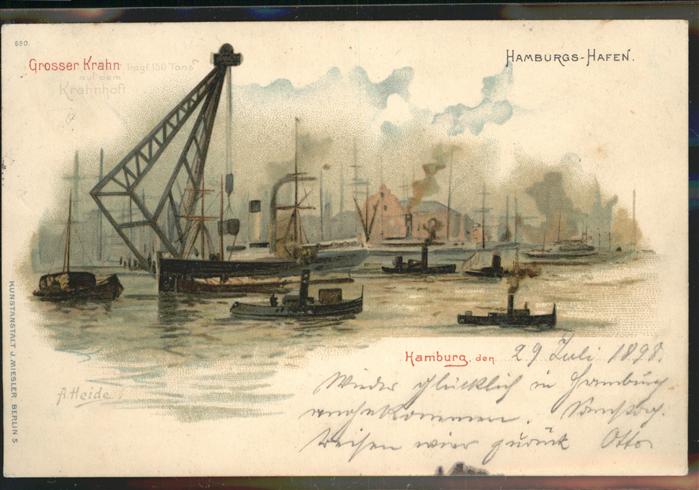 680.
Grosser Krahn trägt 150 Tons
auf dem
Krahnhöft
HAMBURGS-HAFEN.
KUNSTANSTALT J. MIESLER BERLIN S.
A. Heide.
Hamburg, den 29 Juli. 1898.
Wieder glücklich in Hamburg
angekommen. Samstag.
reisen wir zurück Otto